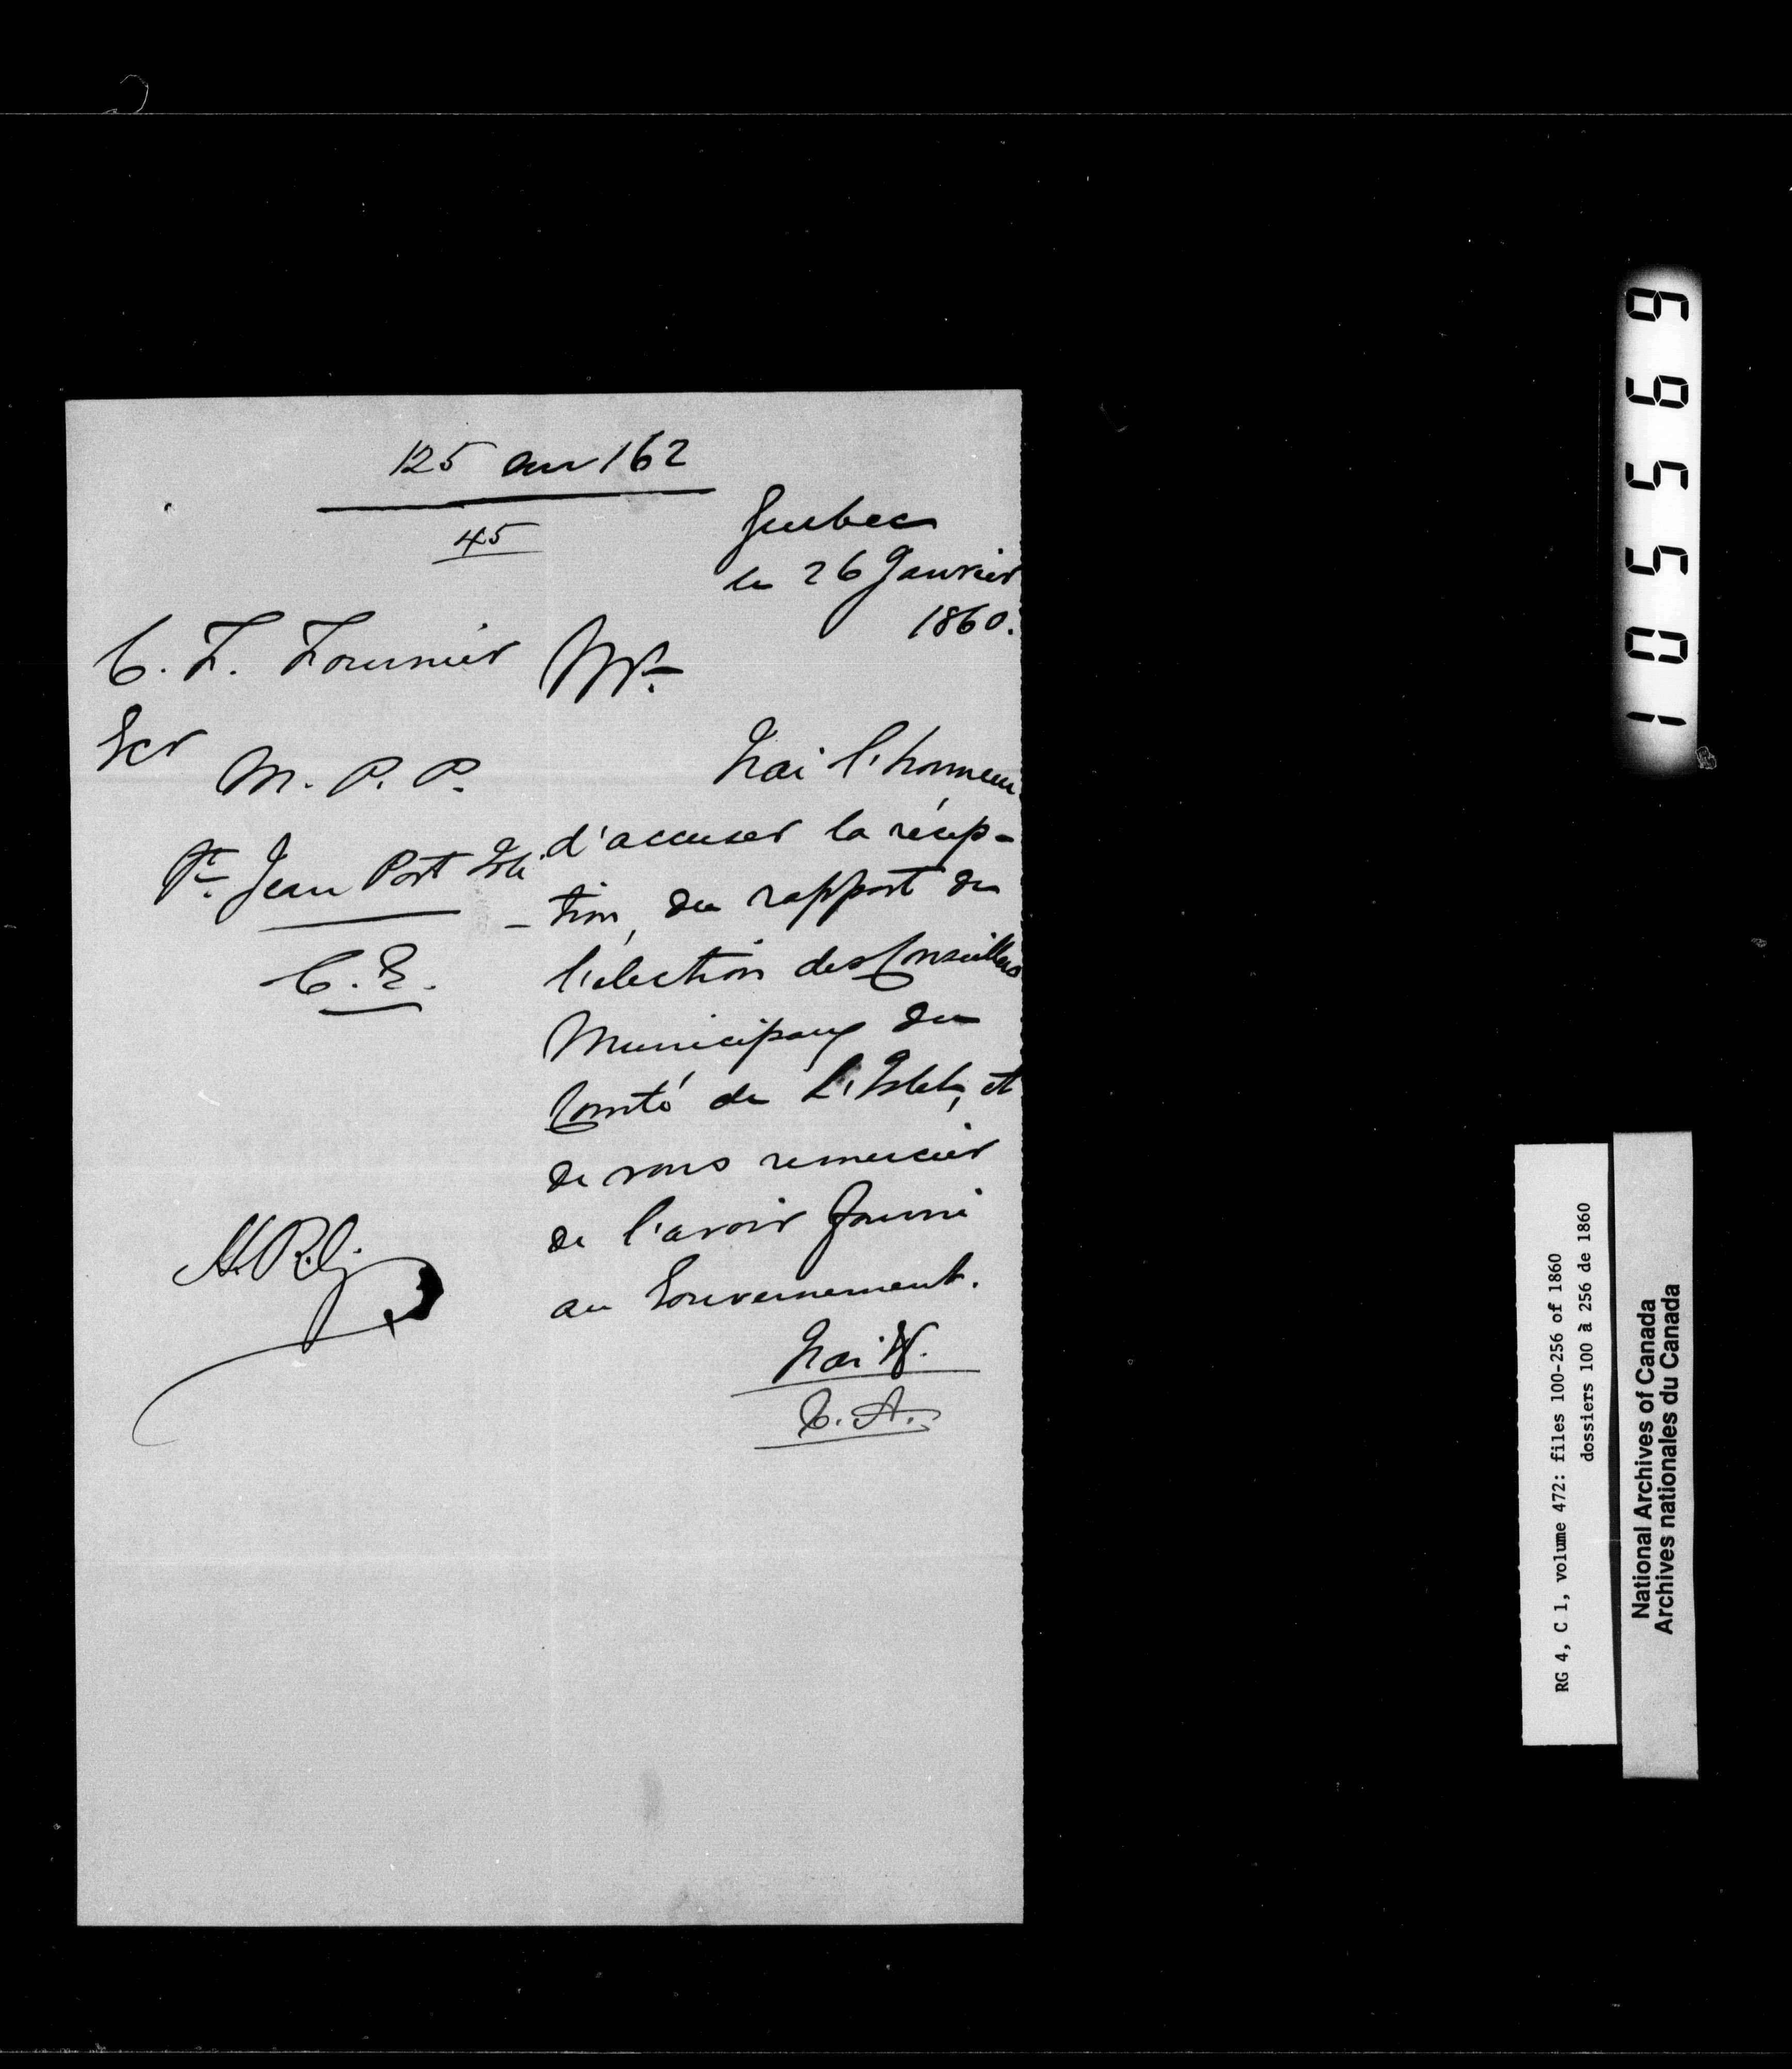 125 au 162
45
Quebec
le 26 Janvier
1860.
C. F. Fournier
Ecr
M. P. P.
St. Jean Port Joli
C. E.
Mr.
J'ai l'honneur
d'accuser la récep-
tion, du rapport de
l'élection des Conseillers
Municipaux du
Comté de L'Islet, et
de vous remercier
de l'avoir fourni
au Gouvernement.
J'ai &.
C. A.
105569
RG 4, C 1, volume 472: files 100-256 of 1860
dossiers 100 à 256 de 1860
National Archives of Canada
Archives nationales du Canada